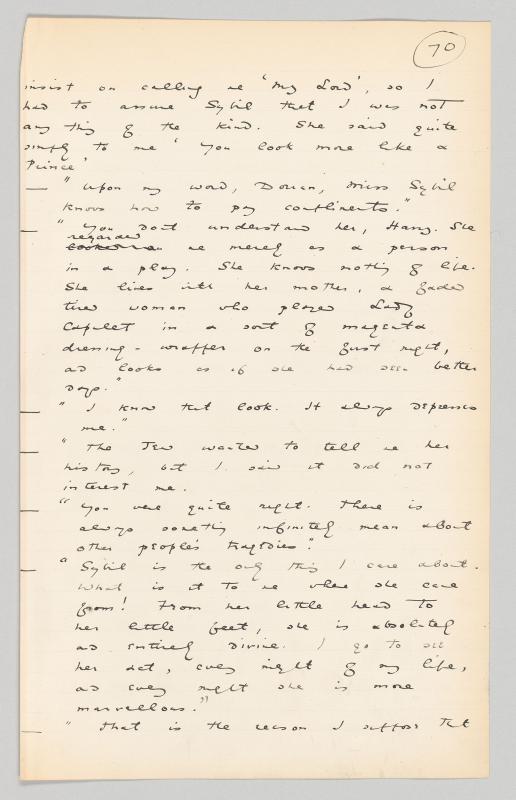 70
insist on calling me 'My Lord', so I
had to assure Sybil that I was not
any thing of the kind. She said quite
simply to me 'You look more like a
Prince'
— "Upon my word, Dorian, Miss Sybil
knows how to pay compliments."
— "You dont understand her, Harry. She
regarded
looked on me merely as a person
in a play. She knows nothing of life.
She lives with her mother, a faded
tired woman who played Lady
Capulet in a sort of magenta
dressing-wrapper on the first night,
and looks as if she had seen better
days."
— "I know that look. It always depresses
me."
— "The Jew wanted to tell me her
history, but I said it did not
interest me.
— "You were quite right. There is
always something infinitely mean about
other people's tragedies".
— "Sybil is the only thing I care about.
What is it to me where she came
from! From her little head to
her little feet, she is absolutely
and entirely divine. I go to see
her act, every night of my life,
and every night she is more
marvellous."
— "That is the reason I suppose that